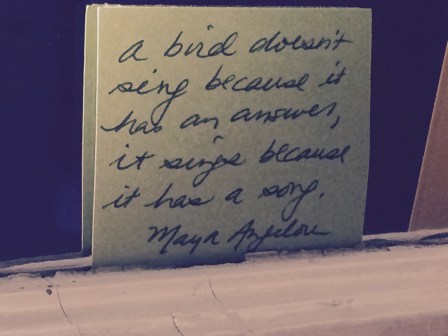 a bird doesn't
sing because it
has an answer,
it sings because
it has a song.
Maya Angelou